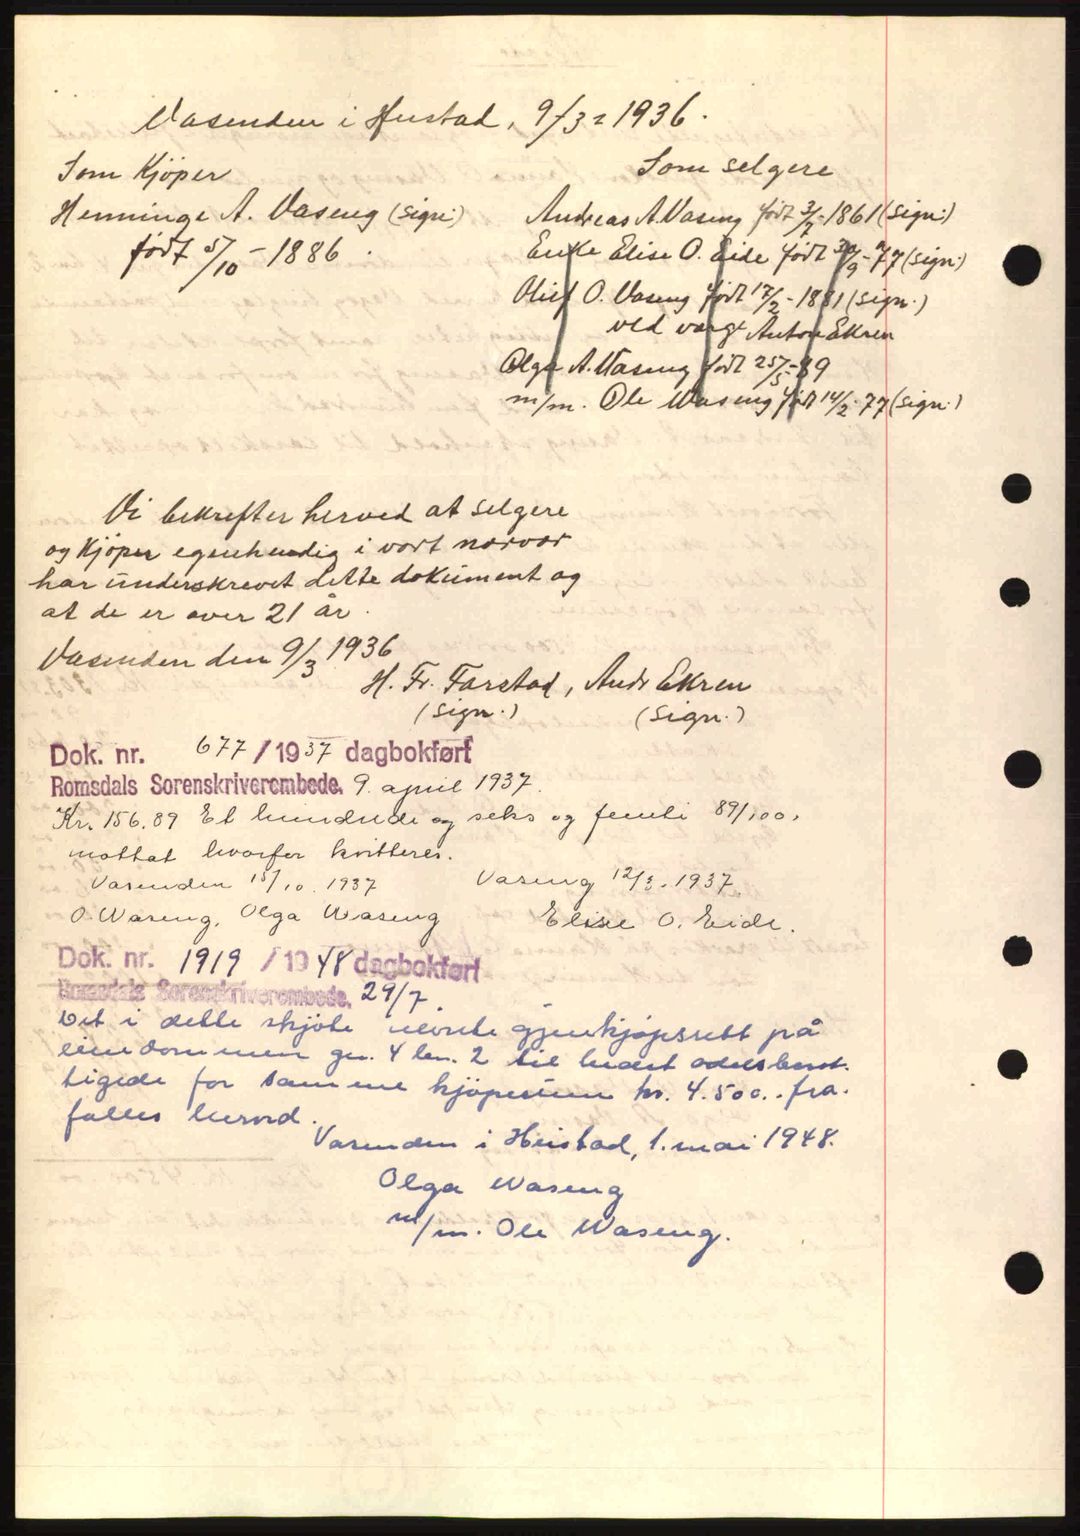 Vasenden i Hustad, 9/3 = 1936.
Som Kjöper
Henninge A. Vaseng (sign:)
født 5/10 - 1886.
Som selgere
Andreas A. Vaseng født 3/7 - 1861 (sign:)
Enke Elise O. Eide født 30/9 - 77 (sign:)
Oluf O. Vaseng født 17/2 - 1881 (sign:)
ved verge Anton Ekren
Olga A. Vaseng født 25/5 - 89
m/m. Ole Waseng født 14/2 - 77 (sign:)
Vi bekrefter herved at selgere
og Kjöper egenhendig i vort nærvær
har underskrevet dette dokument og
at de er over 21 år.
Vasenden den 9/3 1936
H. Fr. Farstad, Andr Ekren
(sign.) (sign.)
Dok. nr. 677 / 1937 dagbokført
Romsdals Sorenskriverembede. 9. april 1937.
Kr. 156.89 Et hundrede og seks og femti 89/100.
mottat hvorfor kvitteres.
Vasenden 15/10. 1937
O. Waseng, Olga Waseng
Vaseng 12/3. 1937.
Elise O. Eide.
Dok. nr. 1919 / 1948 dagbokført
Romsdals Sorenskriverembede. 29/7.
Det i dette skjöte nevnte gjenkjøpsrett på
eiendommen gn. 4 bn. 2 til beste odelsberet-
tigede for samme kjöpesum kr. 4.500.. fra-
falles herved.
Vasenden i Hustad, 1. mai 1948.
Olga Waseng
m/m. Ole Waseng.